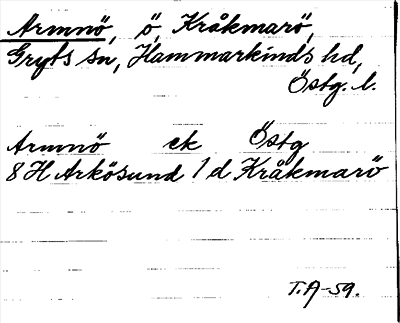 Armnö, ö, Kråkmarö,
Gryts sn, Hammarkinds hd,
Östg. l.
Armnö ek Östg
8 H Arkösund 1 d Kråkmarö
T.A-59.